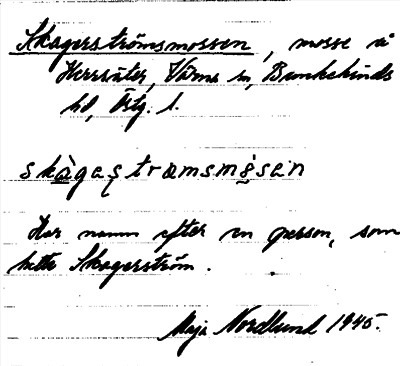 Skagerströmsmossen, mosse å
Herrsäter, Vårns sn, Bankekinds
hd, Östg. l.
skàgaʂtrœmsmɷ̀sɘn
Har namn efter en person, som
hette Skagerström.
Maja Nordlund 1945.